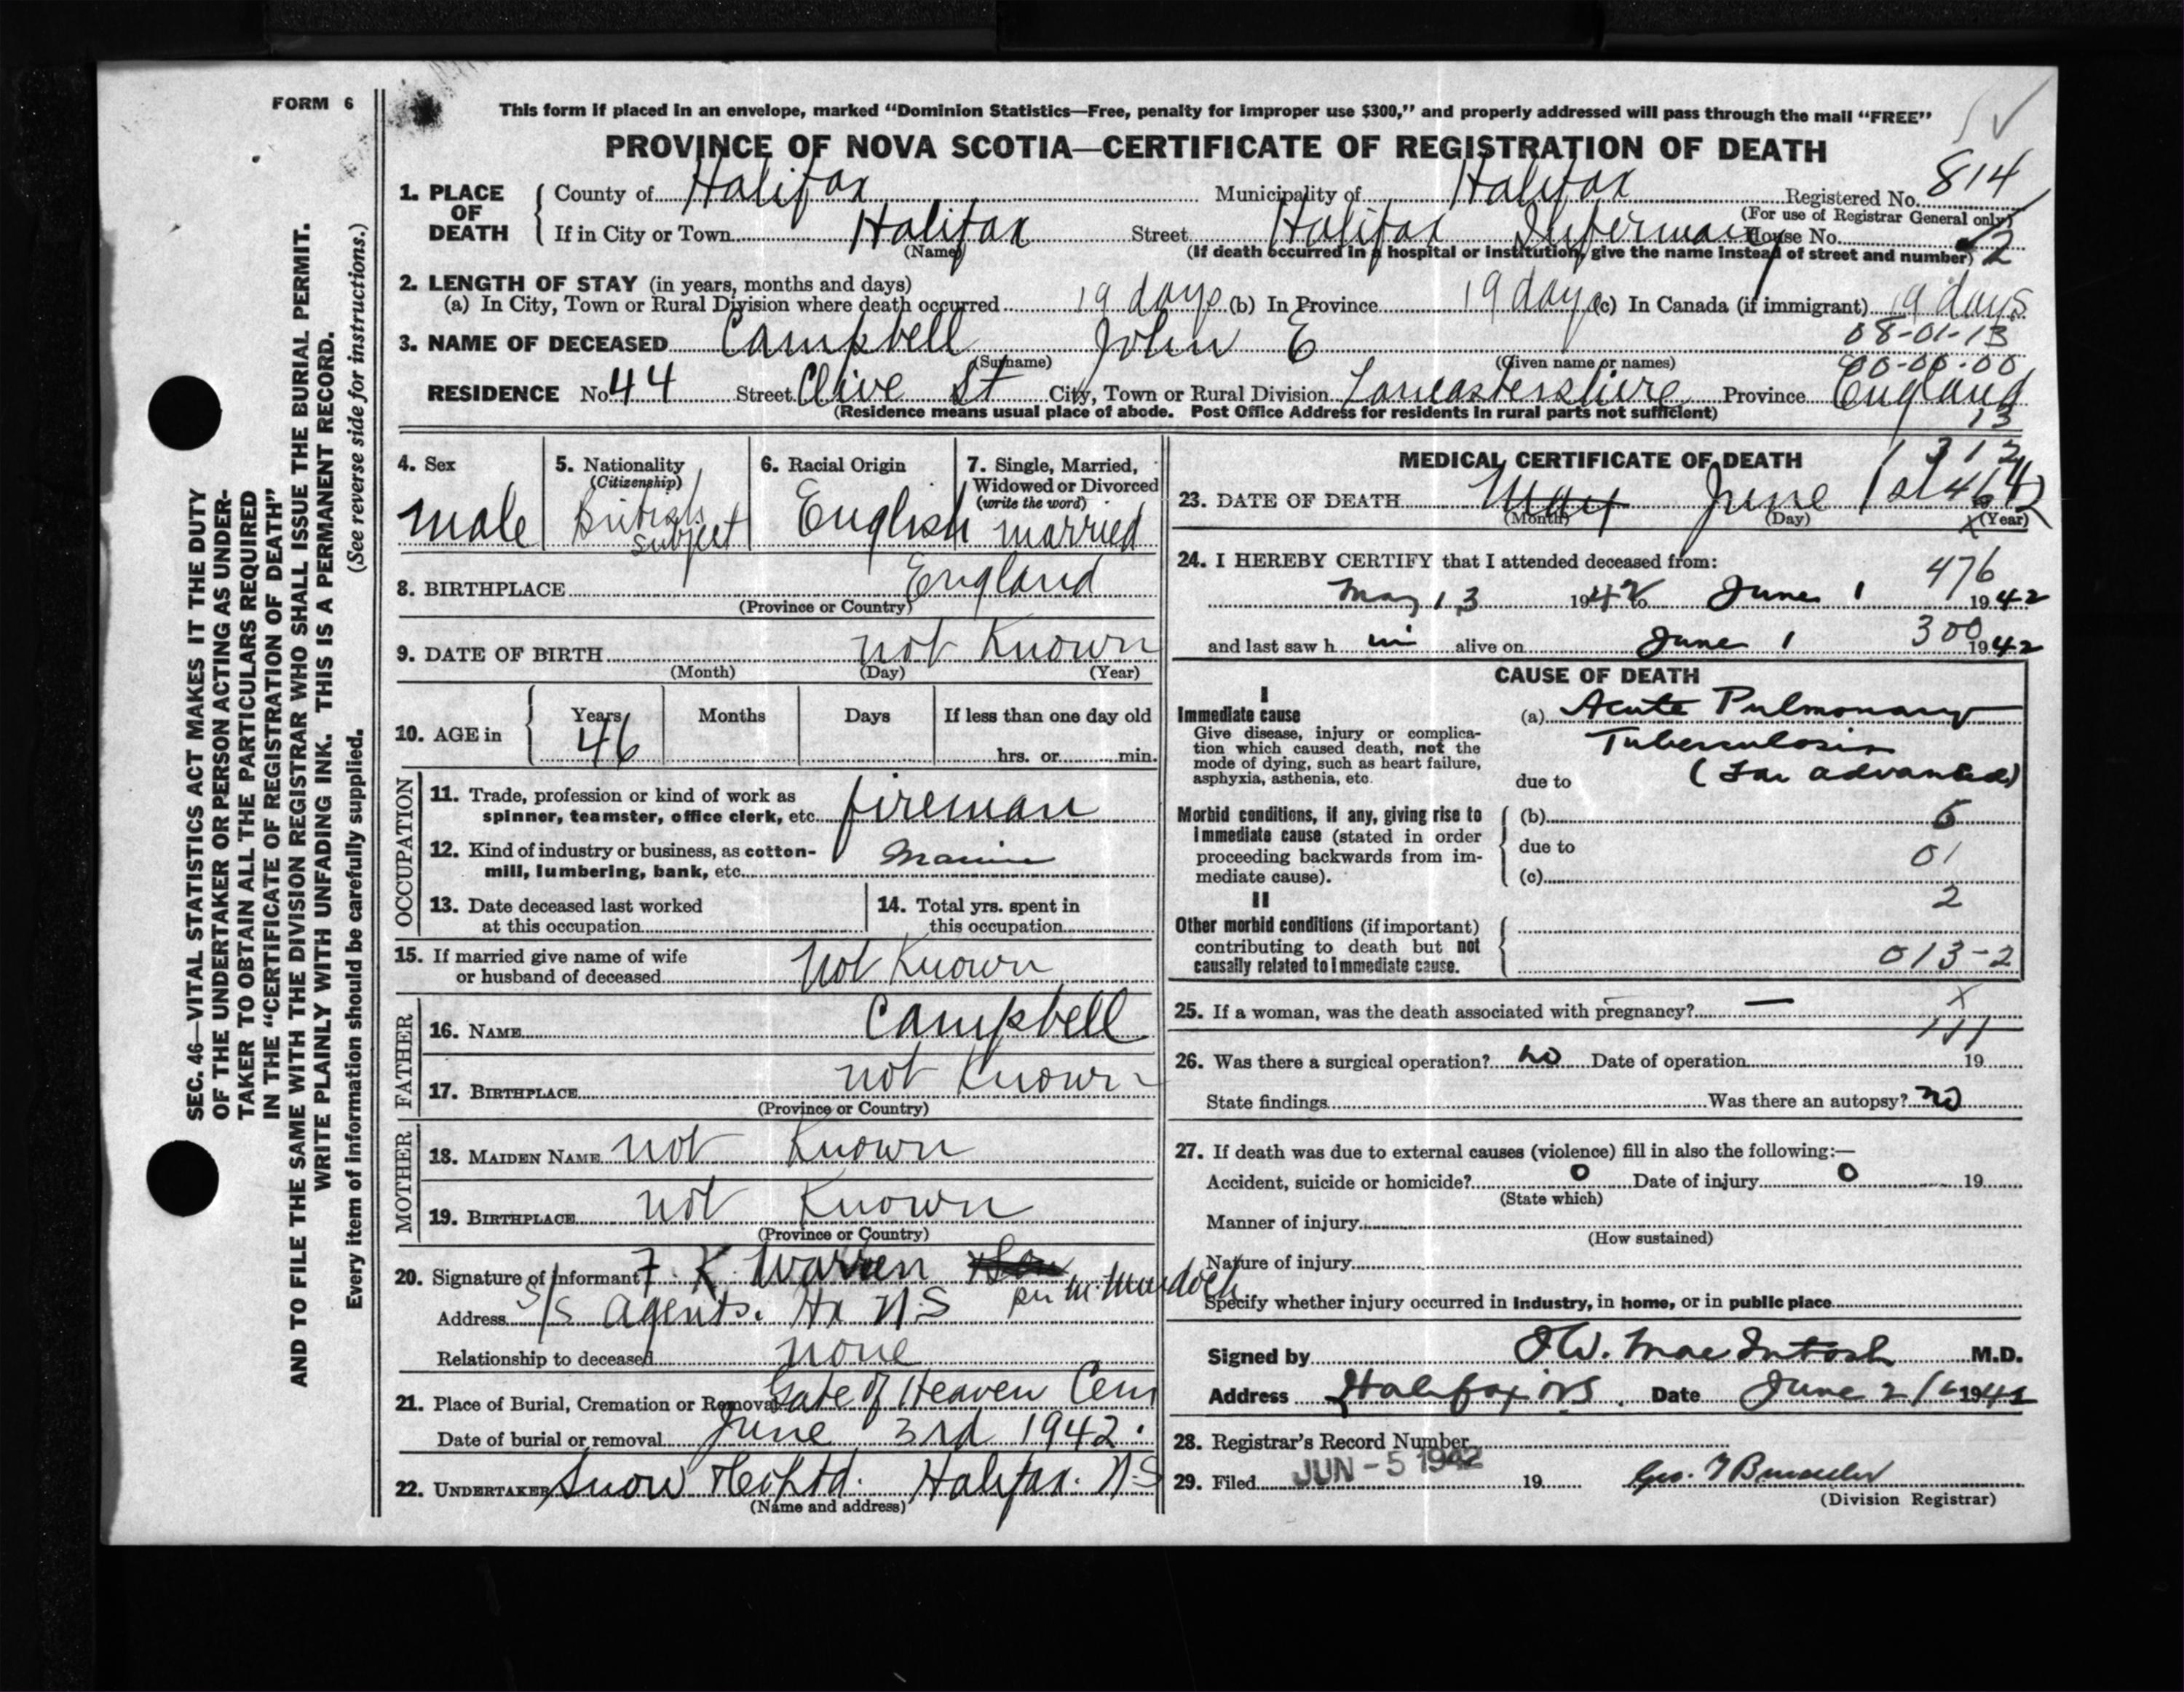 FORM 6
This form if placed in an envelope, marked “Dominion Statistics—Free, penalty for improper use $300,” and properly addressed will pass through the mail “FREE”
PROVINCE OF NOVA SCOTIA—CERTIFICATE OF REGISTRATION OF DEATH
SEC. 46—VITAL STATISTICS ACT MAKES IT THE DUTY
OF THE UNDERTAKER OR PERSON ACTING AS UNDER-
TAKER TO OBTAIN ALL THE PARTICULARS REQUIRED
IN THE “CERTIFICATE OF REGISTRATION OF DEATH”
AND TO FILE THE SAME WITH THE DIVISION REGISTRAR WHO SHALL ISSUE THE BURIAL PERMIT.
WRITE PLAINLY WITH UNFADING INK. THIS IS A PERMANENT RECORD.
Every item of information should be carefully supplied. (See reverse side for instructions.)
1. PLACE OF DEATH County of Halifax Municipality of Halifax Registered No. 814
(For use of Registrar General only)
If in City or Town Halifax Street Halifax Infirmary House No. 2
(Name) (If death occurred in a hospital or institution, give the name instead of street and number)
2. LENGTH OF STAY (in years, months and days)
(a) In City, Town or Rural Division where death occurred 19 days (b) In Province 19 days (c) In Canada (if immigrant) 19 days
08-01-13
3. NAME OF DECEASED Campbell John E
(Surname) (Given name or names) 00-00-00
RESIDENCE No 44 Street Clive St City, Town or Rural Division Lancastershire Province England
(Residence means usual place of abode. Post Office Address for residents in rural parts not sufficient) 13
4. Sex male
5. Nationality (Citizenship) British Subject
6. Racial Origin English
7. Single, Married, Widowed or Divorced (write the word) married
8. BIRTHPLACE England
(Province or Country)
9. DATE OF BIRTH not Known
(Month) (Day) (Year)
10. AGE in Years 46 Months Days If less than one day old
hrs. or min.
OCCUPATION
11. Trade, profession or kind of work as
spinner, teamster, office clerk, etc. fireman
12. Kind of industry or business, as cotton-
mill, lumbering, bank, etc. Marine
13. Date deceased last worked
at this occupation
14. Total yrs. spent in
this occupation
15. If married give name of wife
or husband of deceased not Known
FATHER
16. NAME Campbell
17. BIRTHPLACE not Known
(Province or Country)
MOTHER
18. MAIDEN NAME not Known
19. BIRTHPLACE not Known
(Province or Country)
20. Signature of Informant F. K. Warren per M. Murdoch
Address S/S Agents. Hx N.S
Relationship to deceased none
21. Place of Burial, Cremation or Removal Gate of Heaven Cem
Date of burial or removal June 3rd 1942.
22. UNDERTAKER Snow & Co Ltd. Halifax. N.S
(Name and address)
MEDICAL CERTIFICATE OF DEATH 1 3 1 2
23. DATE OF DEATH May June 1st 42
(Month) (Day) (Year)
24. I HEREBY CERTIFY that I attended deceased from: 476
May 13 1942 to June 1 1942
and last saw h im alive on June 1 300 1942
CAUSE OF DEATH
I
Immediate cause
Give disease, injury or complica-
tion which caused death, not the
mode of dying, such as heart failure,
asphyxia, asthenia, etc.
(a) Acute Pulmonary
Tuberculosis
due to (Far advanced)
Morbid conditions, if any, giving rise to
immediate cause (stated in order
proceeding backwards from im-
mediate cause).
(b) 6
due to 01
(c)
2
II
Other morbid conditions (if important)
contributing to death but not
causally related to immediate cause. 013-2
25. If a woman, was the death associated with pregnancy? — x
111
26. Was there a surgical operation? no Date of operation 19
State findings Was there an autopsy? no
27. If death was due to external causes (violence) fill in also the following:—
Accident, suicide or homicide? 0 Date of injury 0 19
(State which)
Manner of injury
(How sustained)
Nature of injury
Specify whether injury occurred in industry, in home, or in public place
Signed by J W. MacIntosh M.D.
Address Halifax NS. Date June 2 194
28. Registrar's Record Number
29. Filed JUN - 5 1942 19
(Division Registrar)